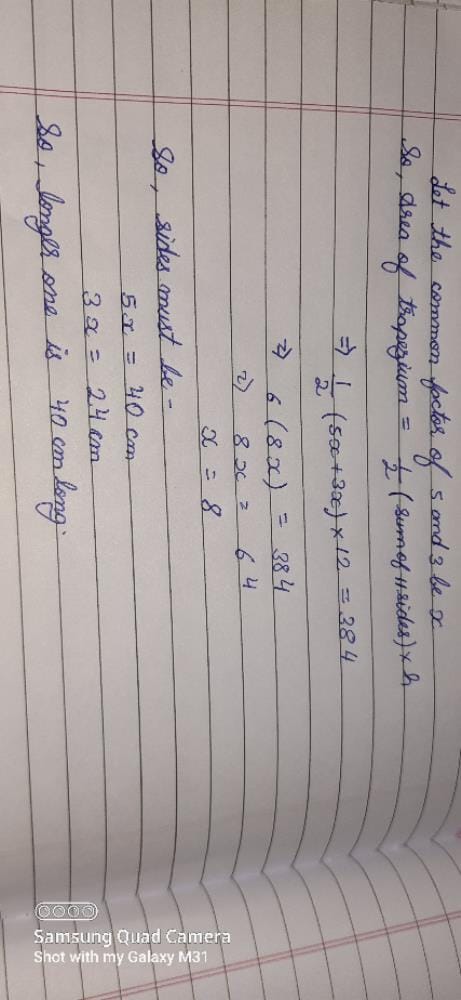 Let the common factor of 5 and 3 be x
So, Area of trapezium = 1/2 (sum of 11 sides) × h
⇒ 1/2 (5x+3x) × 12 = 384
⇒ 6 (8x) = 384
⇒ 8x = 64
x = 8
So, sides must be -
5x = 40 cm
3x = 24 cm
So, longer one is 40 cm long.
Samsung Quad Camera
Shot with my Galaxy M31